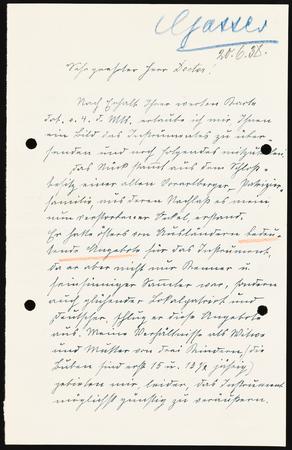 Gasser
20.6.38.
Sehr geehrter Herr Doctor!
Nach Erhalt Ihrer werten Karte
dat. v. 4. d. Mts. erlaube ich mir Ihnen
ein Bild des Instrumentes zu über-
senden und noch folgendes mitzuteilen.
Das Stück stammt aus dem Schloß-
besitz einer alten Vorarlberger, Patrizier-
familie, aus deren Nachlaß es mein
nun verstorbener Onkel, erstand.
Er hatte öfters von Ausländern bedeu-
tende Angebote für das Instrument,
da er aber nicht nur Kenner u.
feinsinniger Sammler war, sondern
auch glühender Lokalpatriot und
Deutscher, schlug er diese Angebote
aus. Meine Verhältnisse als Witwe
und Mutter von drei Kindern, (die
Buben sind erst 15 u. 13½ jährig)
gebieten mir leider, das Instrument
möglichst günstig zu veräußern.